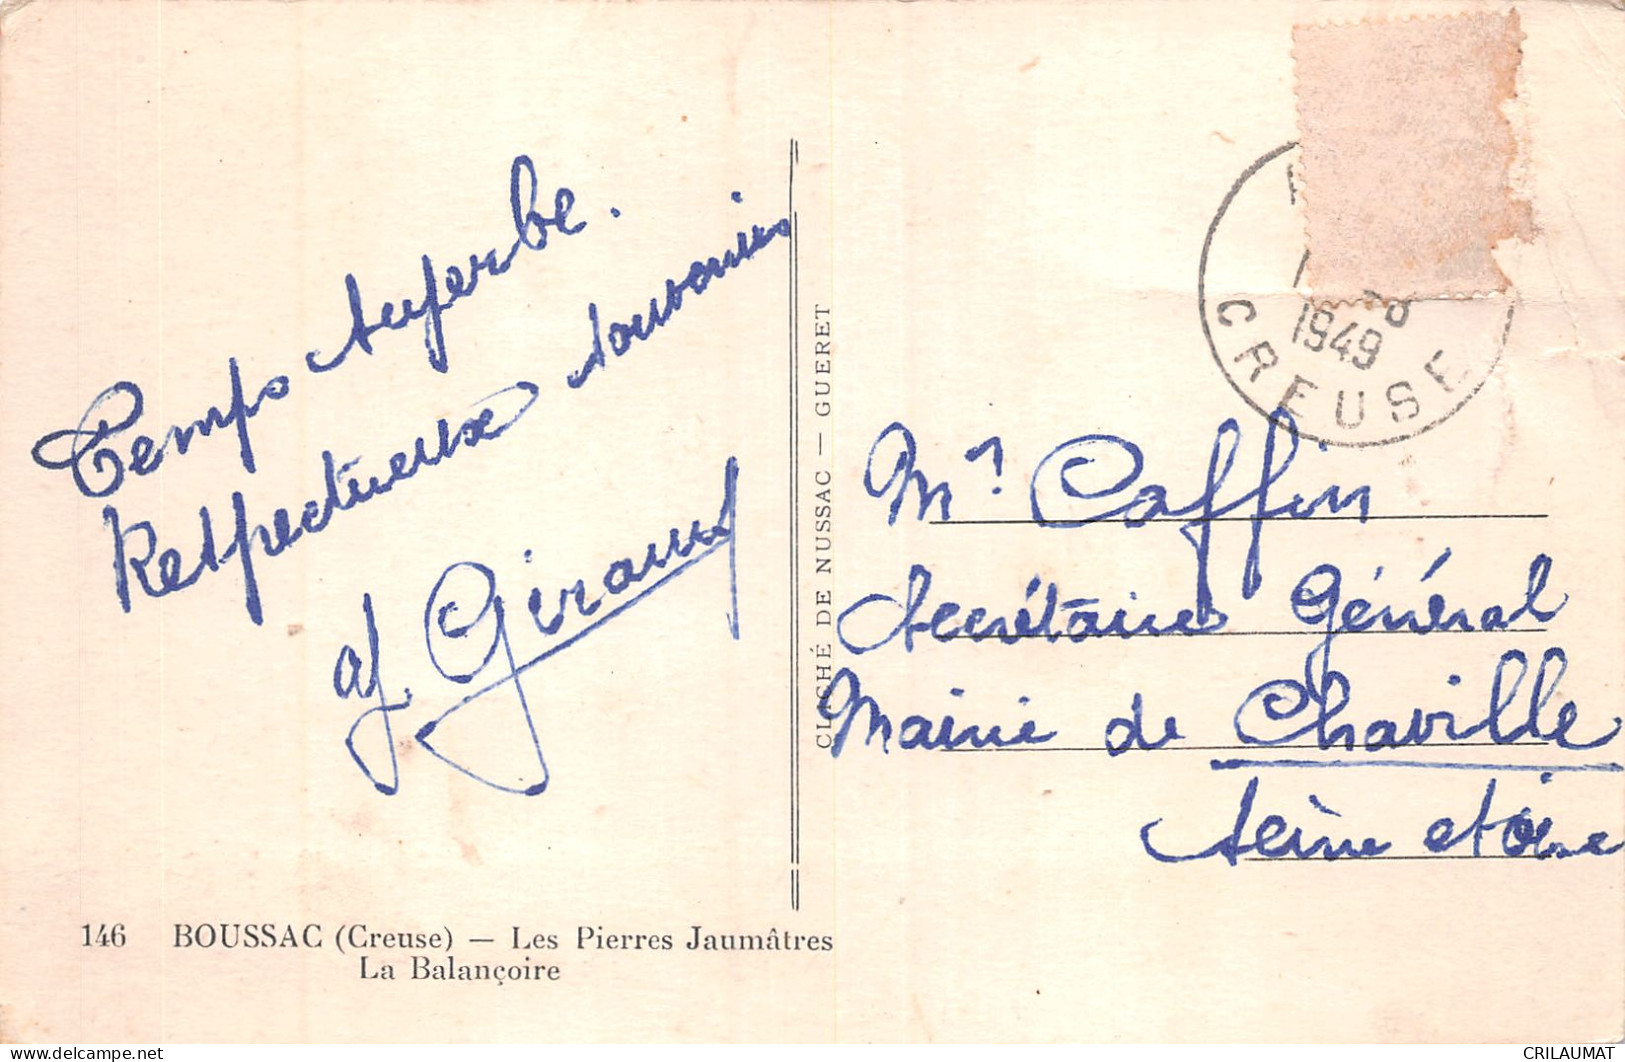 Temps superbe.
Respectueux souvenirs
af Giraud
CLICHÉ DE NUSSAC — GUERET
1949
CREUSE
Mr Caffin
Secrétaire Général
Mairie de Chaville
Seine et Oise
146 BOUSSAC (Creuse) — Les Pierres Jaumâtres
La Balançoire
www.delcampe.net
CRILAUMAT